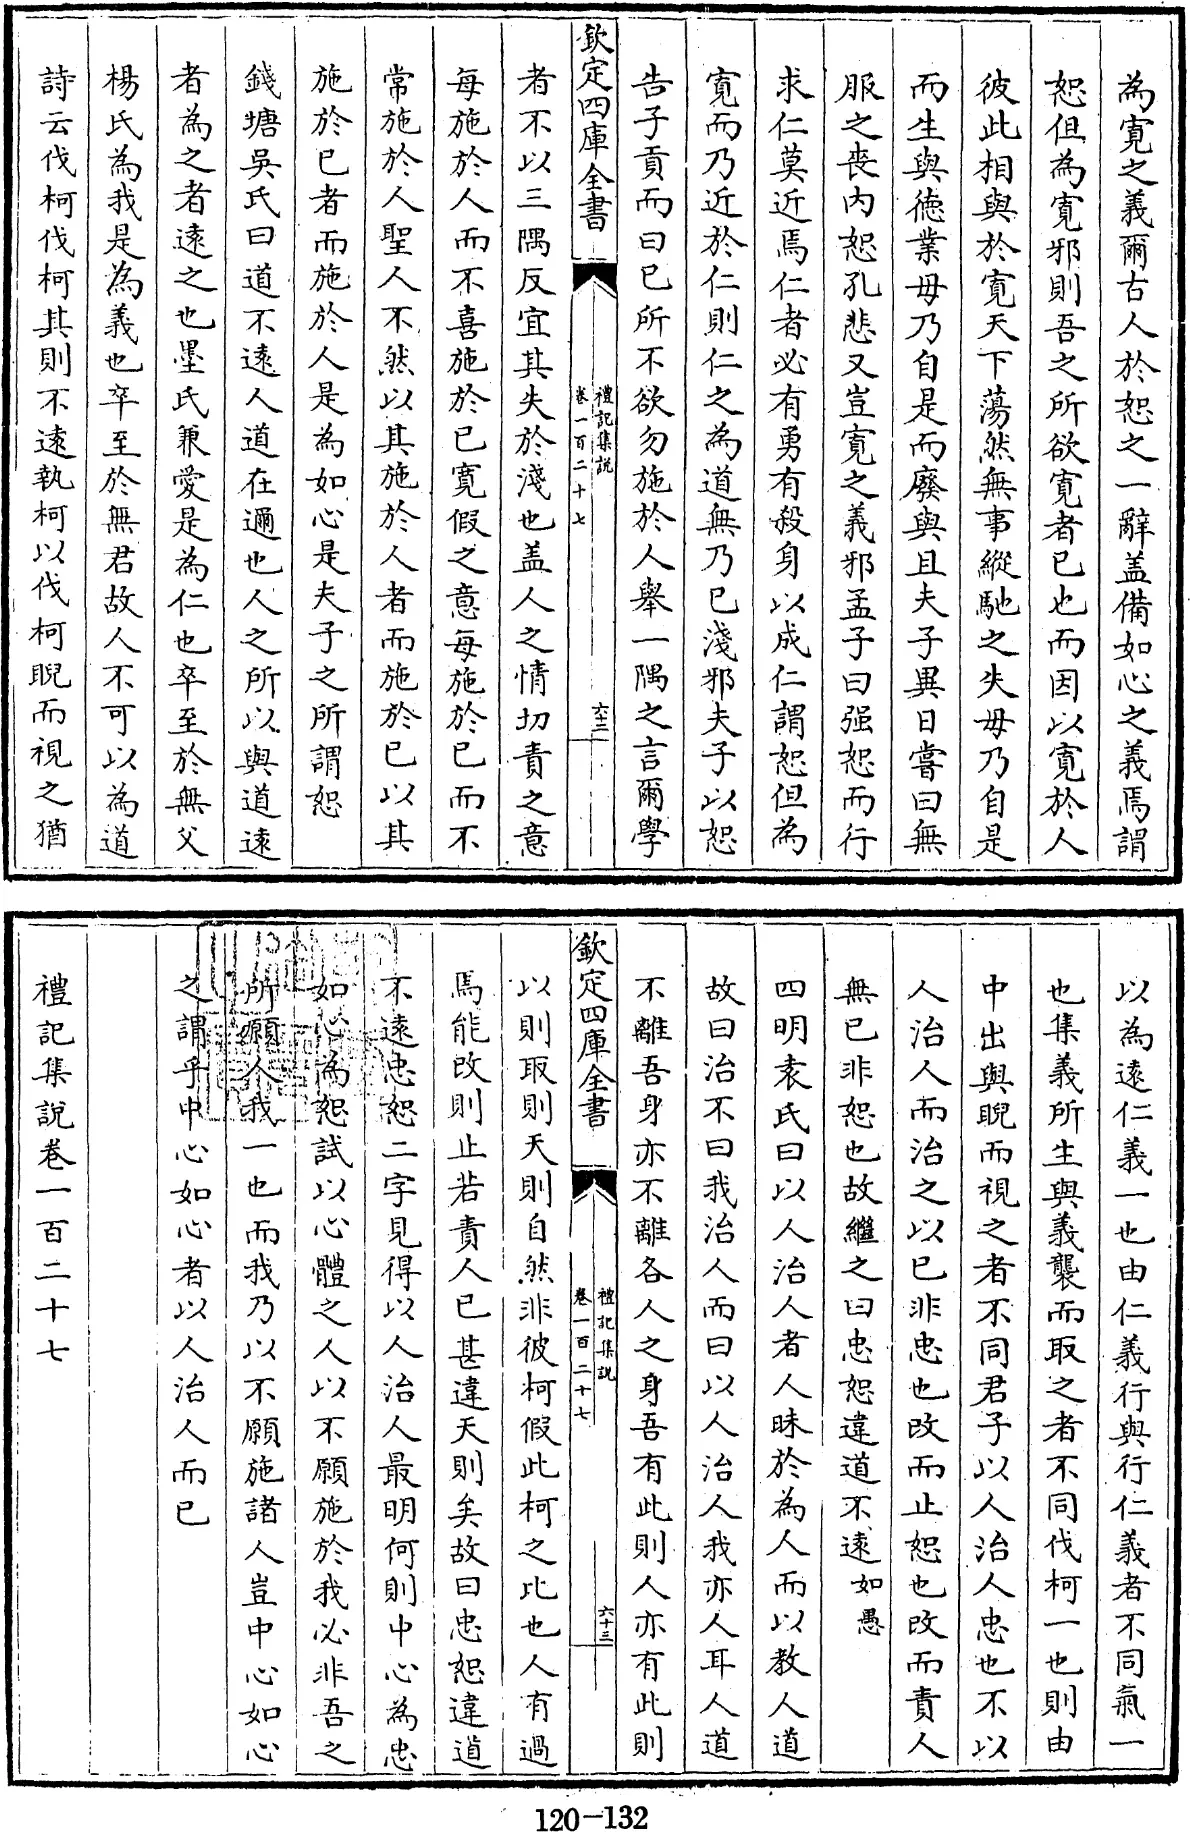 為寛之義爾古人於恕之一辭盖備如心之義焉謂
恕但為寛邪則吾之所欲寛者已也而因以寛於人
彼此相與於寛天下蕩然無事縱馳之失毋乃自是
而生與徳業毋乃自是而廢與且夫子異日嘗曰無
服之喪内恕孔悲又豈寛之義邪孟子曰强恕而行
求仁莫近焉仁者必有勇有殺身以成仁謂恕但為
寛而乃近於仁則仁之為道無乃已淺邪夫子以恕
告子貢而曰已所不欲勿施於人舉一隅之言爾學
欽定四庫全書
禮記集説
卷一百二十七
六十三
者不以三隅反宜其失於淺也盖人之情切責之意
每施於人而不喜施於已寛假之意每施於已而不
常施於人聖人不然以其施於人者而施於已以其
施於已者而施於人是為如心是夫子之所謂恕
錢塘吳氏曰道不逺人道在邇也人之所以與道逺
者為之者逺之也墨氏兼愛是為仁也卒至於無父
楊氏為我是為義也卒至於無君故人不可以為道
詩云伐柯伐柯其則不逺執柯以伐柯睨而視之猶
以為逺仁義一也由仁義行與行仁義者不同氣一
也集義所生與義襲而取之者不同伐柯一也則由
中出與睨而視之者不同君子以人治人忠也不以
人治人而治之以已非忠也改而止恕也改而責人
無已非恕也故繼之曰忠恕違道不逺如愚
四明袁氏曰以人治人者人昧於為人而以教人道
故曰治不曰我治人而曰以人治人我亦人耳人道
不離吾身亦不離各人之身吾有此則人亦有此則
欽定四庫全書
禮記集説
卷一百二十七
六十三
以則取則天則自然非彼柯假此柯之比也人有過
焉能改則止若責人已甚違天則矣故曰忠恕違道
不逺忠恕二字見得以人治人最明何則中心為忠
如心為恕試以心體之人以不願施於我必非吾之
所願人我一也而我乃以不願施諸人豈中心如心
之謂乎中心如心者以人治人而已
禮記集説卷一百二十七
120-132